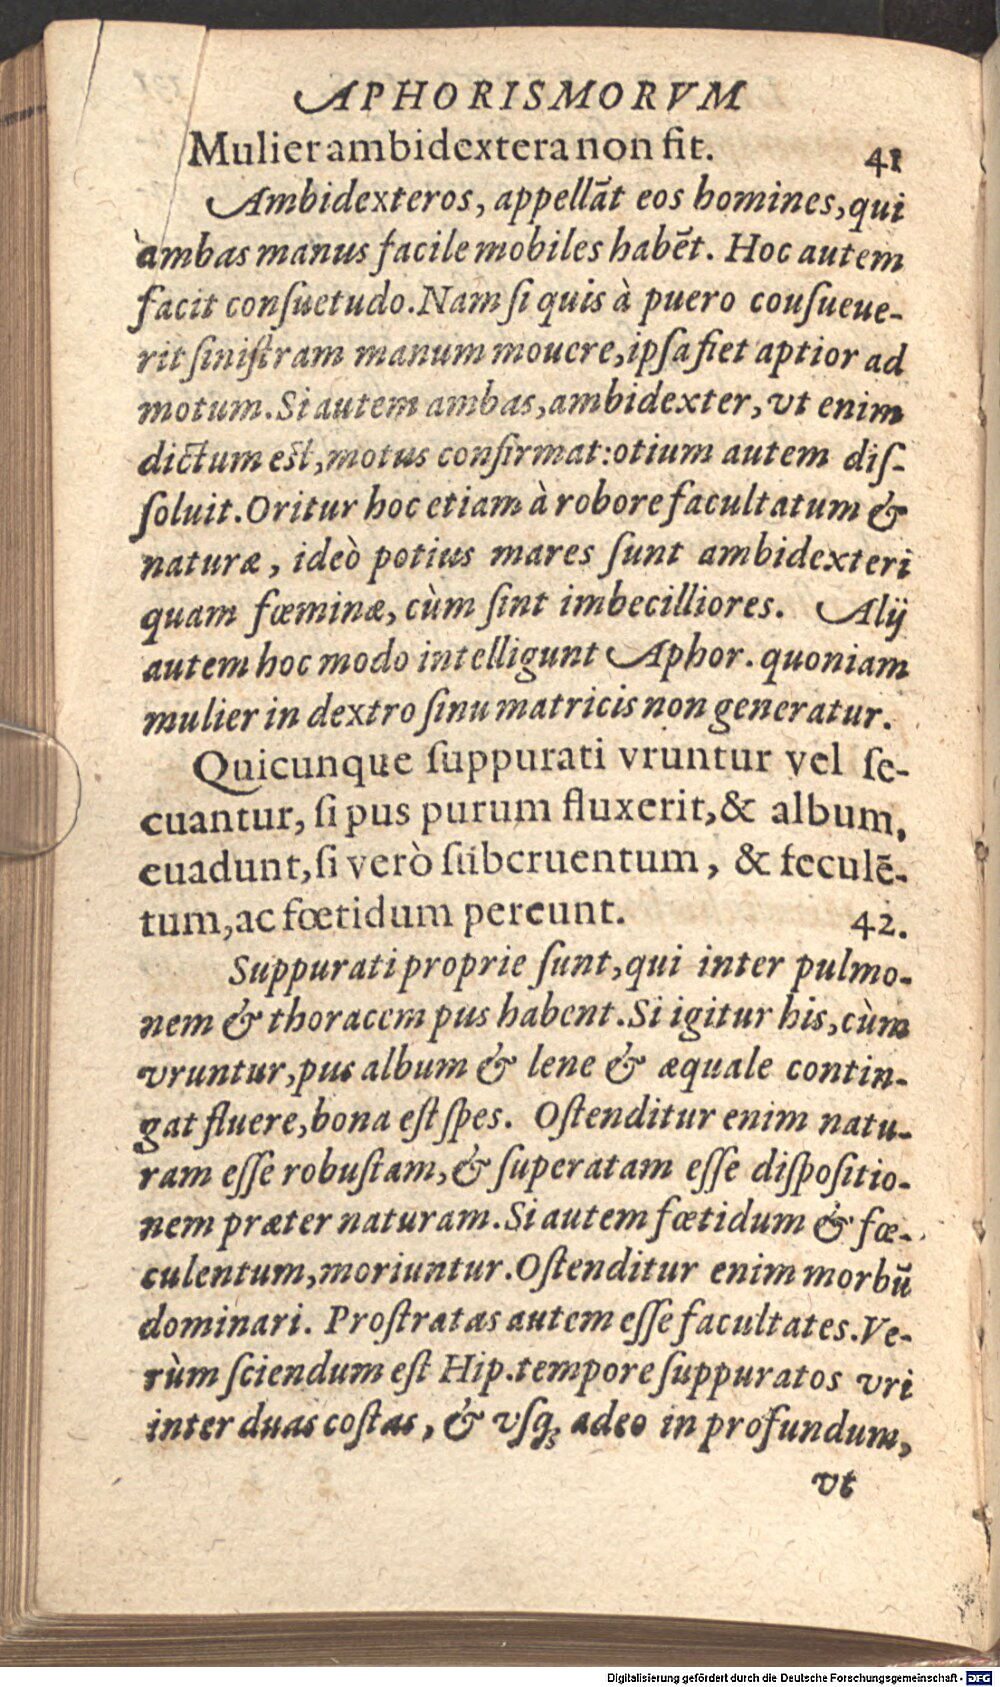 APHORISMORVM
Mulier ambidextera non fit. 41
Ambidexteros, appellāt eos homines, qui
ambas manus facile mobiles habēt. Hoc autem
facit conſuetudo. Nam ſi quis à puero couſueue-
rit ſiniſtram manum mouere, ipſa fiet aptior ad
motum. Si autem ambas, ambidexter, vt enim
dictum eſt, motus confirmat: otium autem diſ-
ſoluit. Oritur hoc etiam à robore facultatum &
naturæ, ideò potius mares ſunt ambidexteri
quam fœminæ, cùm ſint imbecilliores. Alij
autem hoc modo intelligunt Aphor. quoniam
mulier in dextro ſinu matricis non generatur.
Quicunque ſuppurati vruntur vel ſe-
cuantur, ſi pus purum fluxerit, & album,
euadunt, ſi verò ſubcruentum, & feculē-
tum, ac fœtidum pereunt. 42.
Suppurati proprie ſunt, qui inter pulmo-
nem & thoracem pus habent. Si igitur his, cùm
vruntur, pus album & lene & æquale contin-
gat fluere, bona eſt ſpes. Oſtenditur enim natu-
ram eſſe robuſtam, & ſuperatam eſſe diſpoſitio-
nem præter naturam. Si autem fœtidum & fœ-
culentum, moriuntur. Oſtenditur enim morbū
dominari. Proſtratas autem eſſe facultates. Ve-
rùm ſciendum eſt Hip. tempore ſuppuratos vri
inter duas coſtas, & vſq; adeo in profundum,
vt
Digitalisierung gefördert durch die Deutsche Forschungsgemeinschaft - DFG